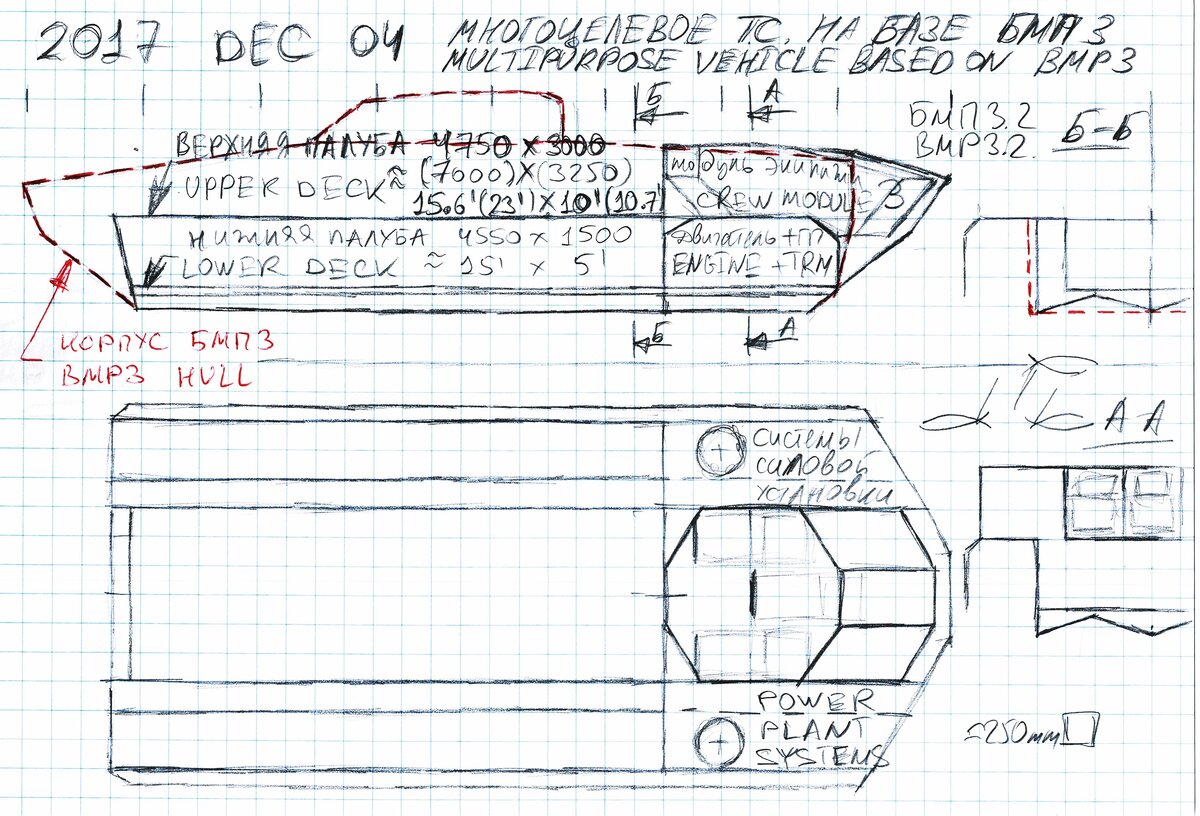 2017 DEC 04
МНОГОЦЕЛЕВОЕ ТС. НА БАЗЕ БМП 3
MULTIPURPOSE VEHICLE BASED ON BMP3
Б
А
БМП3.2
BMP3.2.
Б-Б
ВЕРХНЯЯ ПАЛУБА 4750 × 3000
UPPER DECK ≈ (7000)×(3250)
15.6'(23')×10'(10.7')
модуль экипажа
CREW MODULE 3
НИЖНЯЯ ПАЛУБА 4550 × 1500
LOWER DECK ≈ 15' × 5'
Двигатель+ГП
ENGINE+TRM
Б
А
КОРПУС БМП3
BMP3 HULL
А А
СИСТЕМЫ
СИЛОВОЙ
УСТАНОВКИ
POWER
PLANT
SYSTEMS
≈250mm